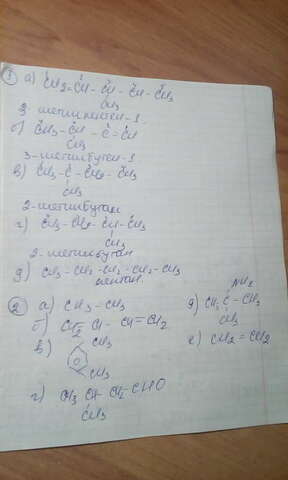 1 а) CH2=CH-CH-CH-CH3
CH3
3-метилпентен-1
б) CH3-CH-C≡CH
CH3
3-метилбутен-1
в) CH3-C-CH2-CH3
CH3
2-метилбутан
г) CH3-CH2-CH-CH3
CH3
2-метилбутан
д) CH3-CH2-CH2-CH2-CH3
пентан
2 а) CH3-CH3
б) CH2=CH-CH=CH2
в) CH3
CH3
г) CH3 CH-CH2-CHO
CH3
NH2
д) CH3 C-CH3
CH3
е) CH2=CH2